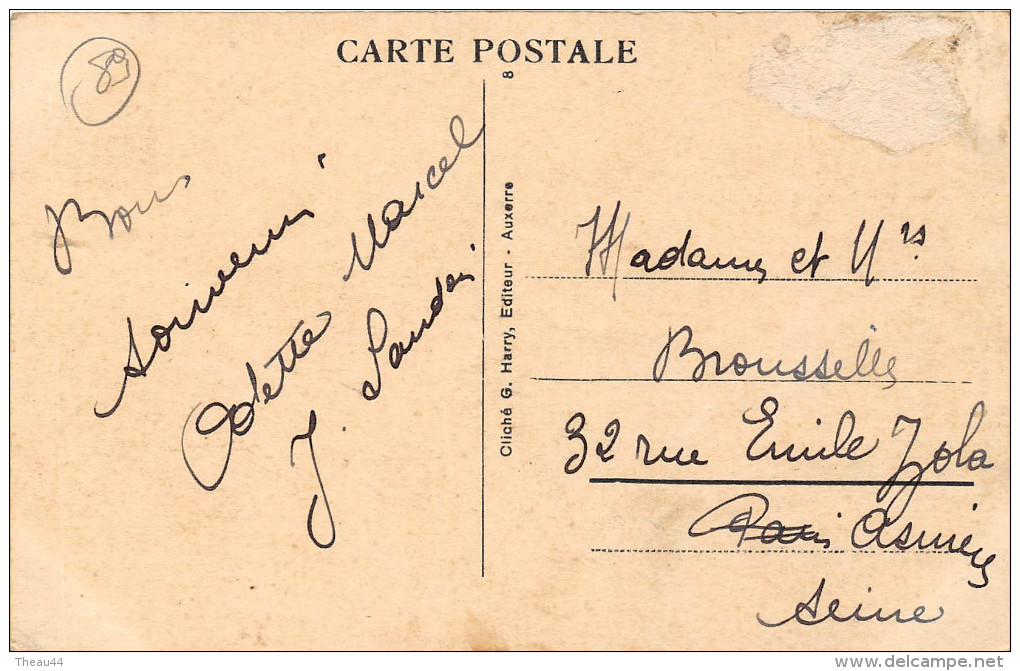 CARTE POSTALE
8
89
Bons
souvenirs
Odette Marcel
J.
Cliché G. Harry, Editeur - Auxerre
Madame et Mrs
Brousselle
32 rue Emile Zola
Paris Asnières
Seine
Theau44
www.delcampe.net